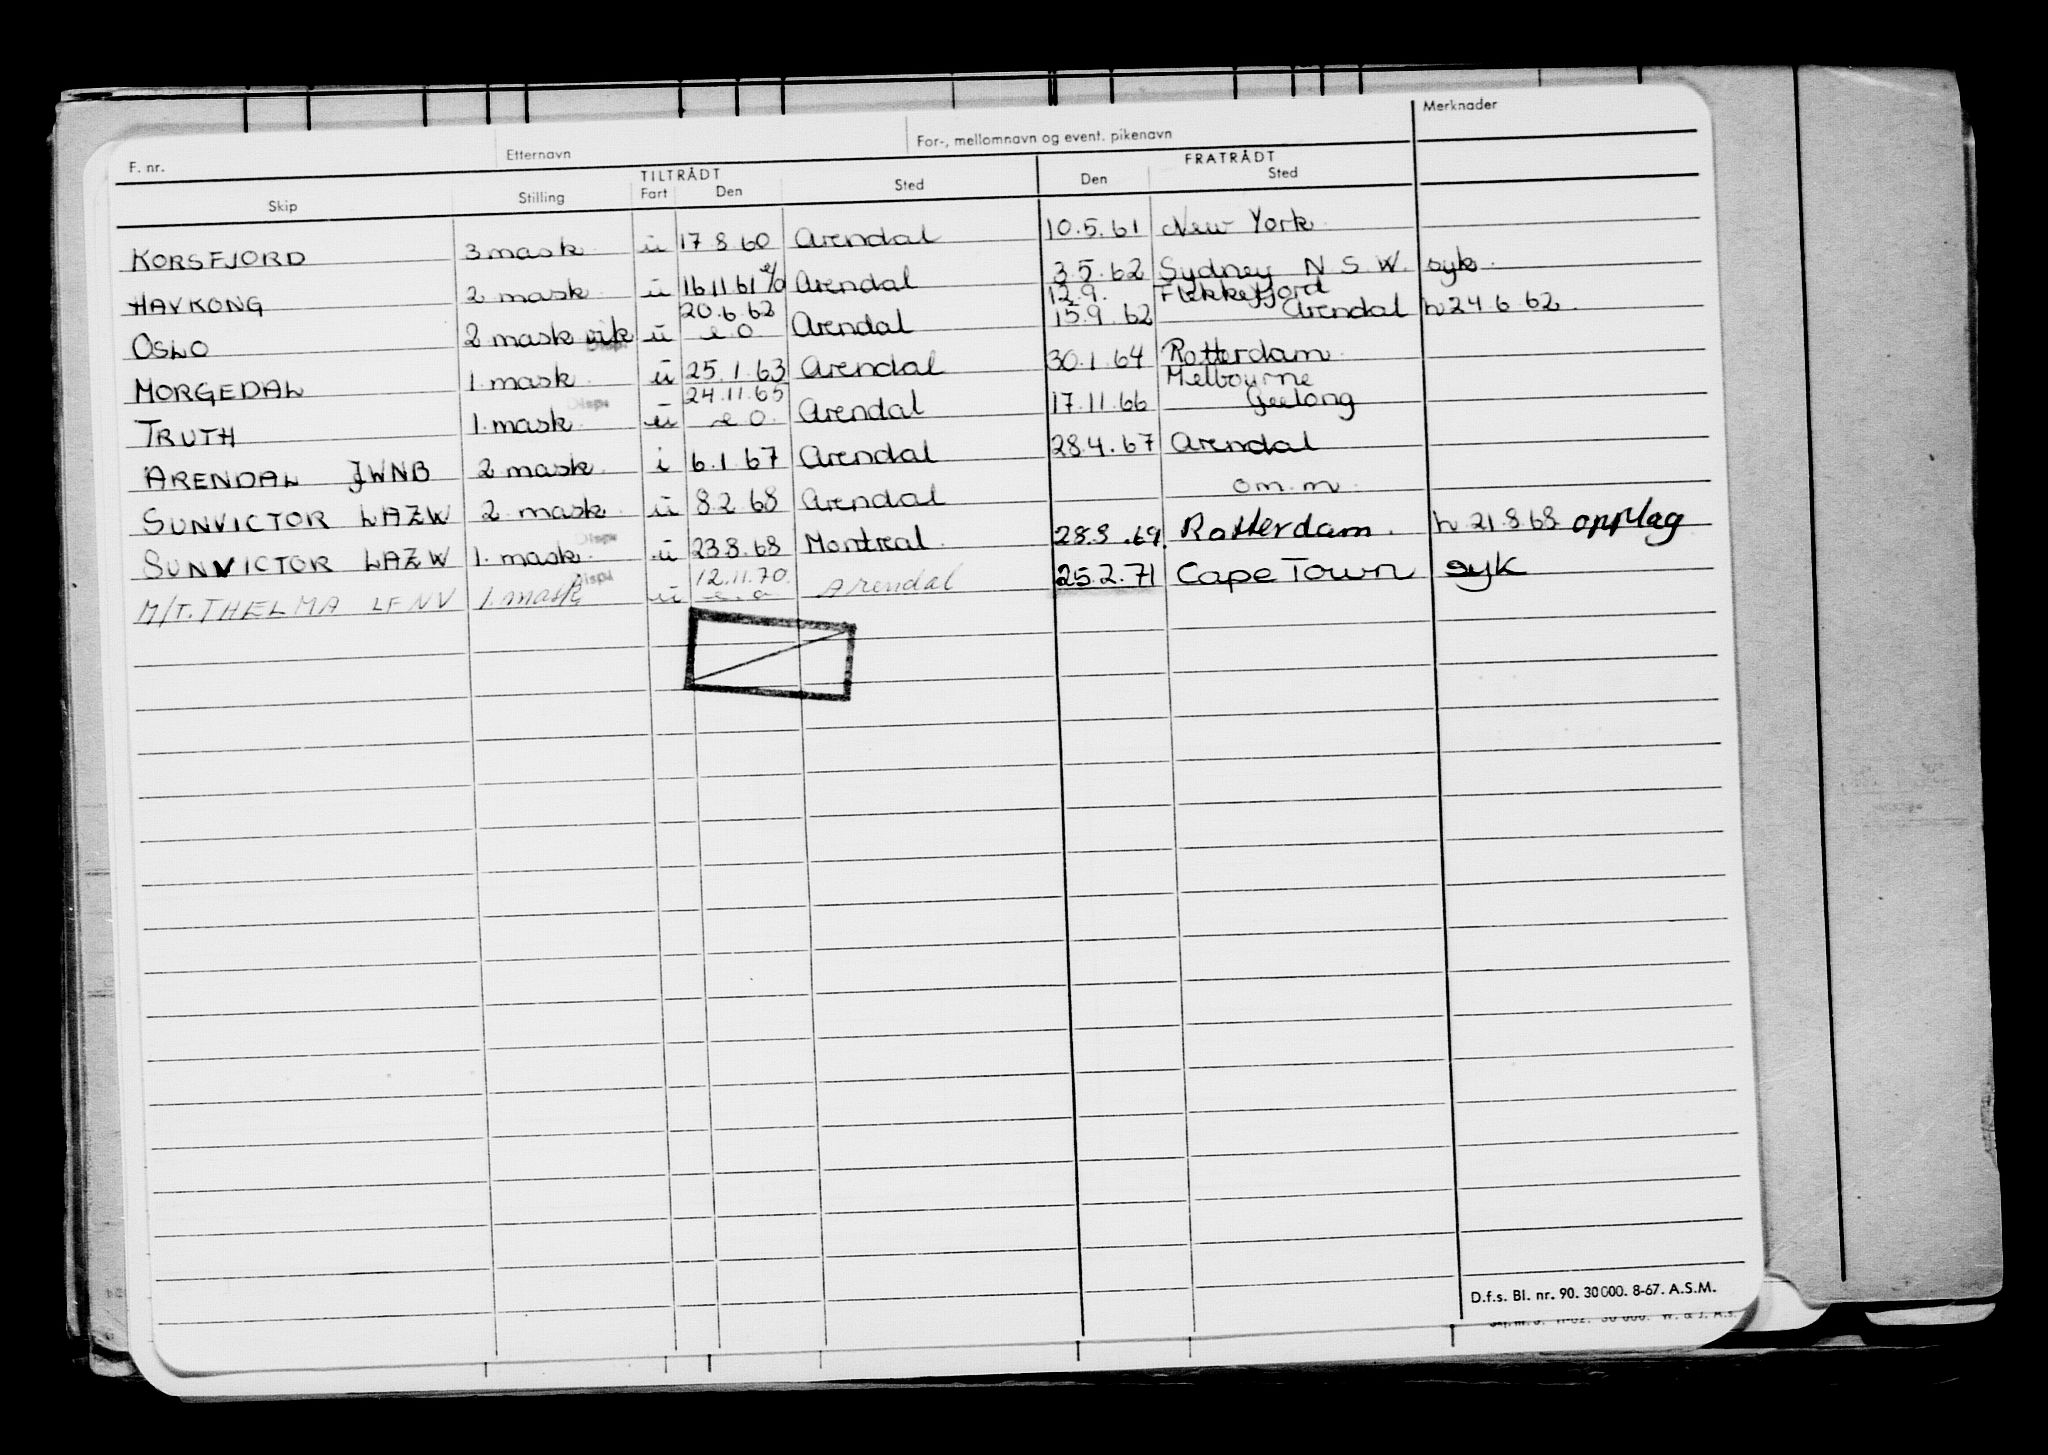 Merknader
F. nr. Etternavn For-, mellomnavn og event. pikenavn
TILTRÅDT FRATRÅDT
Skip Stilling Fart Den Sted Den Sted
KORSFJORD 3 mask u 17 8 60 Arendal 10.5.61 New York
HAVKONG 2 mask u 16.11.61 e/o Arendal 3.5.62 Sydney N.S.W. syk
20.6.62 12.9. Flekkefjord
OSLO 2 mask vik Disp. u e.o Arendal 15.9.62 Arendal h 24 6 62
MORGEDAL 1. mask u 25.1.63 Arendal 30.1.64 Rotterdam
24.11.65 Melbourne
TRUTH 1. mask Disp. u e.o. Arendal 17.11.66 Geelong
ARENDAL JWNB 2 mask i 6.1.67 Arendal 28.4.67 Arendal
SUNVICTOR LAZW 2 mask u 8.2 68 Arendal om.m.
SUNVICTOR LAZW 1. mask Disp. u 23.8.68 Montreal 28.8.69. Rotterdam. h 21.8 68 opplag
12.11.70.
M/T. THELMA LFNV 1. mask Disp. u e.o Arendal 25.2.71 Cape Town syk
D.f.s. Bl. nr. 90. 30 000. 8-67. A.S.M.